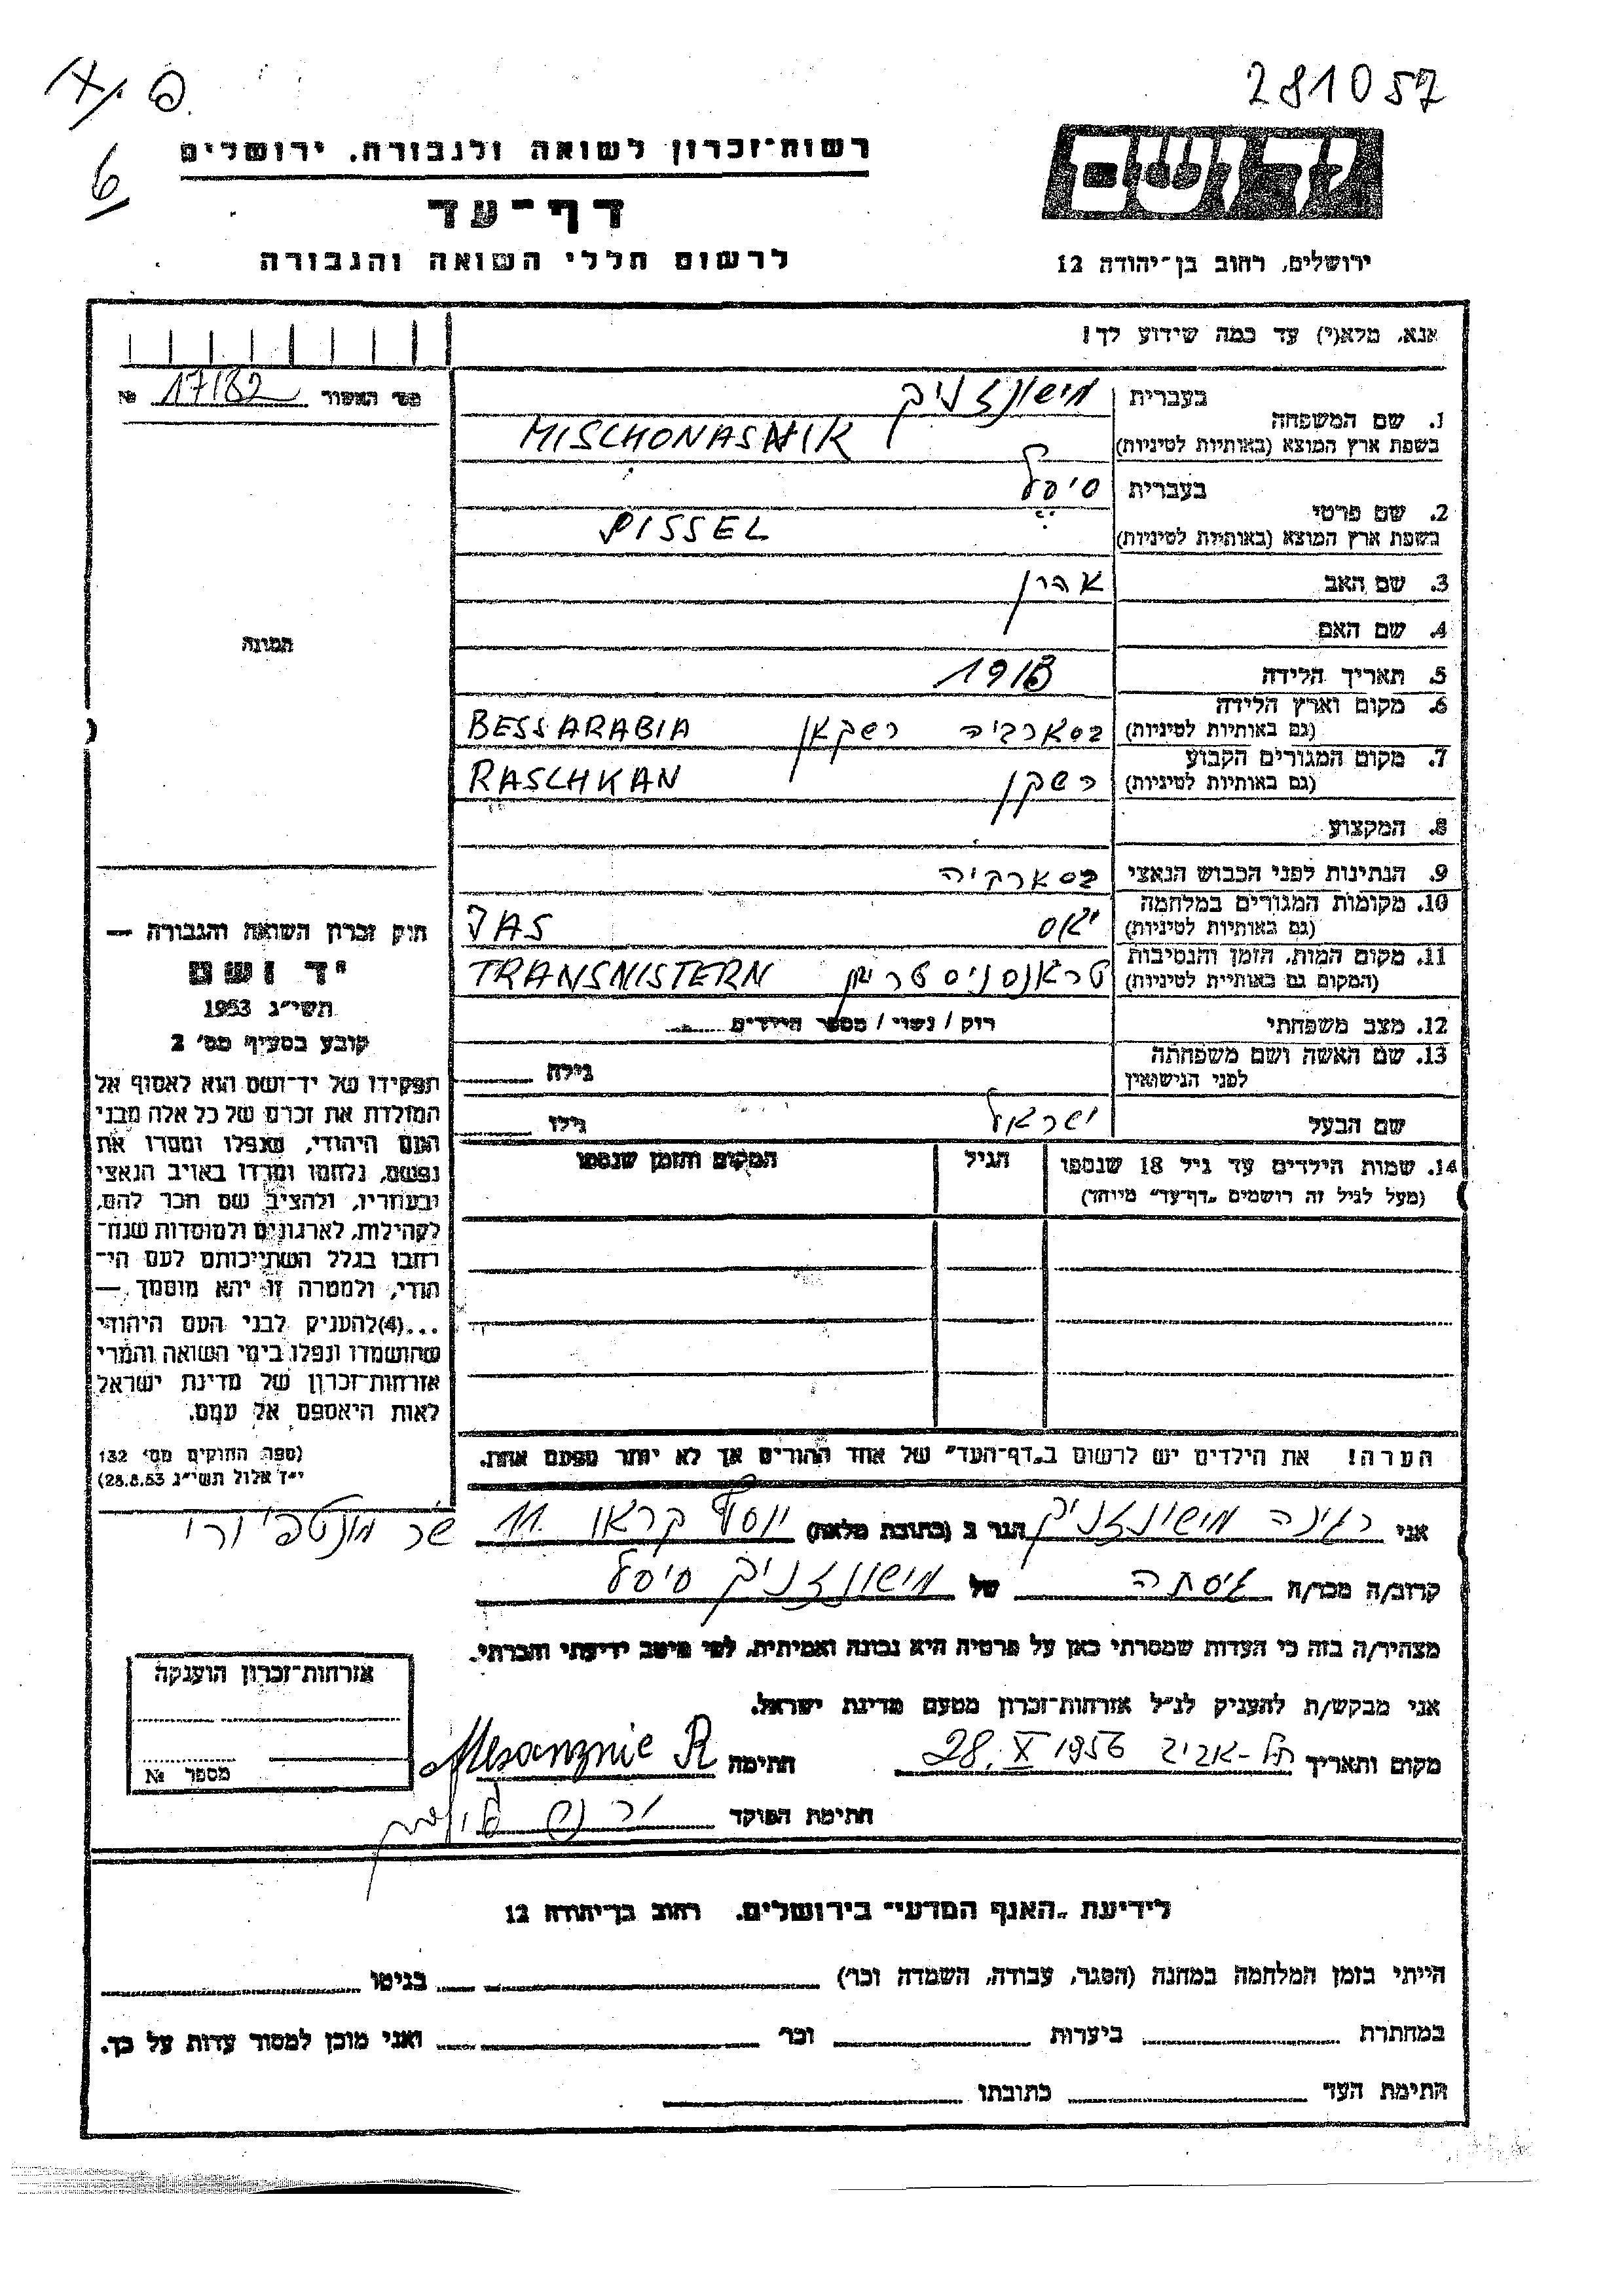 281057
6
יד ושם
רשות־זכרון לשואה ולגבורה, ירושלים
דף־עד
לרשום חללי השואה והגבורה
ירושלים, רחוב בן־יהודה 12
אנא, מלא(י) עד כמה שידוע לך!
מס׳ האשור 17182 №
1. שם המשפחה בעברית מישונזניק
בשפת ארץ המוצא (באותיות לטיניות) MISCHONASNIK
2. שם פרטי בעברית סיסל
בשפת ארץ המוצא (באותיות לטיניות) SISSEL
3. שם האב אהרן
4. שם האם
התמונה
5. תאריך הלידה 1918
6. מקום וארץ הלידה (גם באותיות לטיניות) בסארביה רשקאן BESSARABIA
7. מקום המגורים הקבוע (גם באותיות לטיניות) רשקן RASCHKAN
8. המקצוע
9. הנתינות לפני הכבוש הנאצי בסארביה
10. מקומות המגורים במלחמה (גם באותיות לטיניות) יאס JAS
11. מקום המות, הזמן והנסיבות (המקום גם באותיות לטיניות) טראנסניסטרין TRANSNISTERN
12. מצב משפחתי רוק / נשוי / מספר הילדים
13. שם האשה ושם משפחתה לפני הנישואין גילה
שם הבעל ישראל גילו
14. שמות הילדים עד גיל 18 שנספו הגיל המקום והזמן שנספו
(מעל לגיל זה רושמים „דף־עד״ מיוחד)
חוק זכרון השואה והגבורה —
יד ושם
תשי״ג 1953
קובע בסעיף מס׳ 2
תפקידו של יד־ושם הוא לאסוף אל
המולדת את זכרם של כל אלה מבני
העם היהודי, שנפלו ומסרו את
נפשם, נלחמו ומרדו באויב הנאצי
ובעוזריו, ולהציב שם וזכר להם,
לקהילות, לארגונים ולמוסדות שנח־
רבו בגלל השתייכותם לעם הי־
הודי, ולמטרה זו יהא מוסמך —
...(4) להעניק לבני העם היהודי
שהושמדו ונפלו בימי השואה והמרי
אזרחות־זכרון של מדינת ישראל
לאות היאספם אל עמם.
(ספר החוקים מס׳ 132
י״ד אלול תשי״ג 28.8.53)
הערה! את הילדים יש לרשום ב„דף־העד״ של אחד ההורים אך לא יותר מפעם אחת.
אני רגינה מישונזניק הגר ב (כתובת מלאה) יוסף קראו 11
קרוב/ה מכר/ה גיסתה של מישונזניק סיסל
מצהיר/ה בזה כי העדות שמסרתי כאן על פרטיה היא נכונה ואמיתית, לפי מיטב ידיעתי והכרתי.
אני מבקש/ת להעניק לנ״ל אזרחות־זכרון מטעם מדינת ישראל.
מקום ותאריך תל-אביב 28.X 1956 חתימה
חתימת הפוקד
אזרחות־זכרון הוענקה
מספר №
לידיעת „האגף המדעי״ בירושלים, רחוב בן־יהודה 12
הייתי בזמן המלחמה במחנה (הסגר, עבודה, השמדה וכו׳) בגיטו
במחתרת ביערות וכו׳ ואני מוכן למסור עדות על כך.
חתימת העד כתובתו